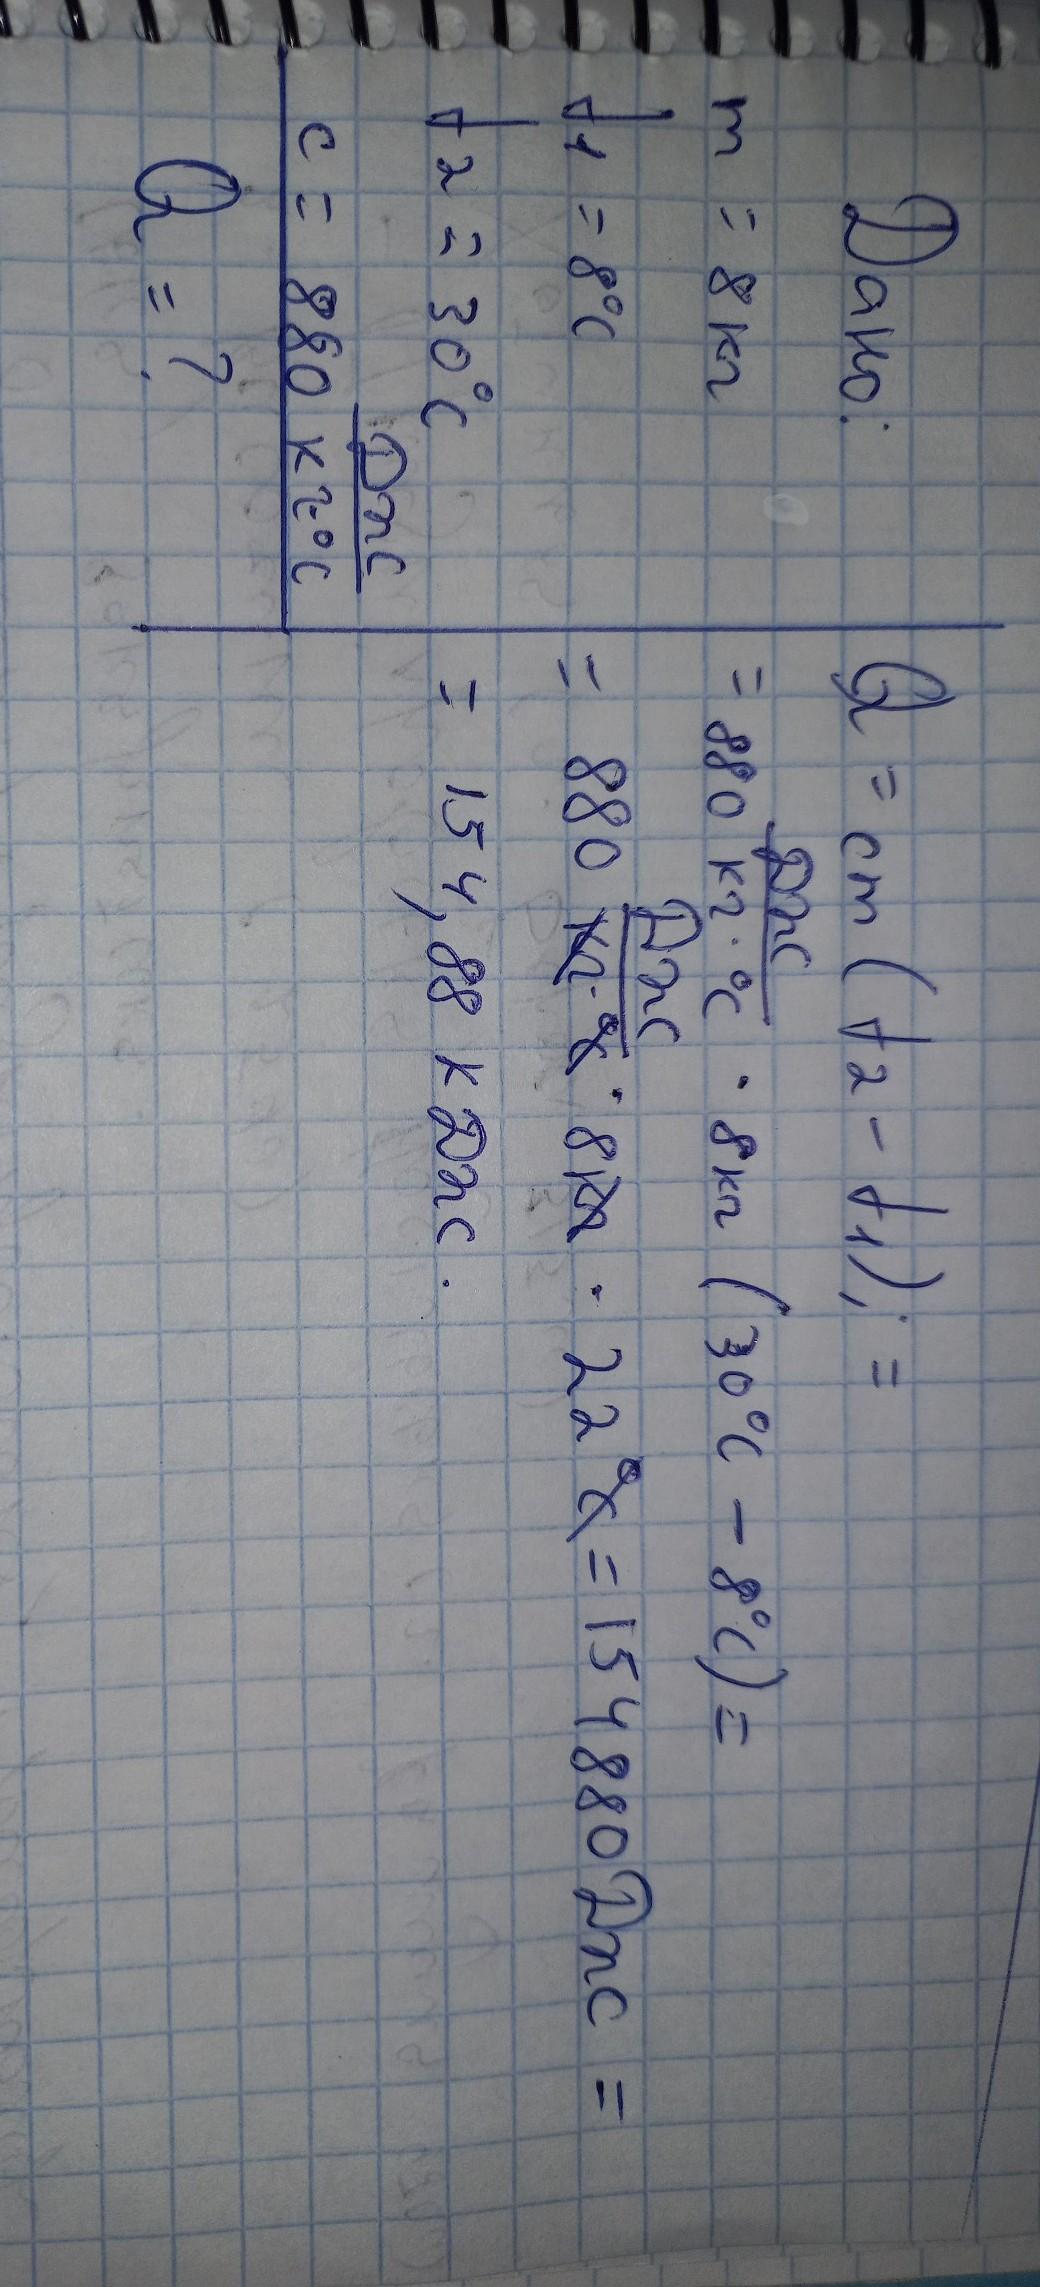 Дано:
m = 8 кг
t1 = 8°C
t2 = 30°C
c = 880 Дж/кг·°C
Q = ?
Q = cm (t2 - t1); =
= 880 Дж/кг·°C · 8кг (30°C - 8°C) =
= 880 Дж/кг·°C · 8кг · 22°C = 154880Дж =
= 154,88 кДж.